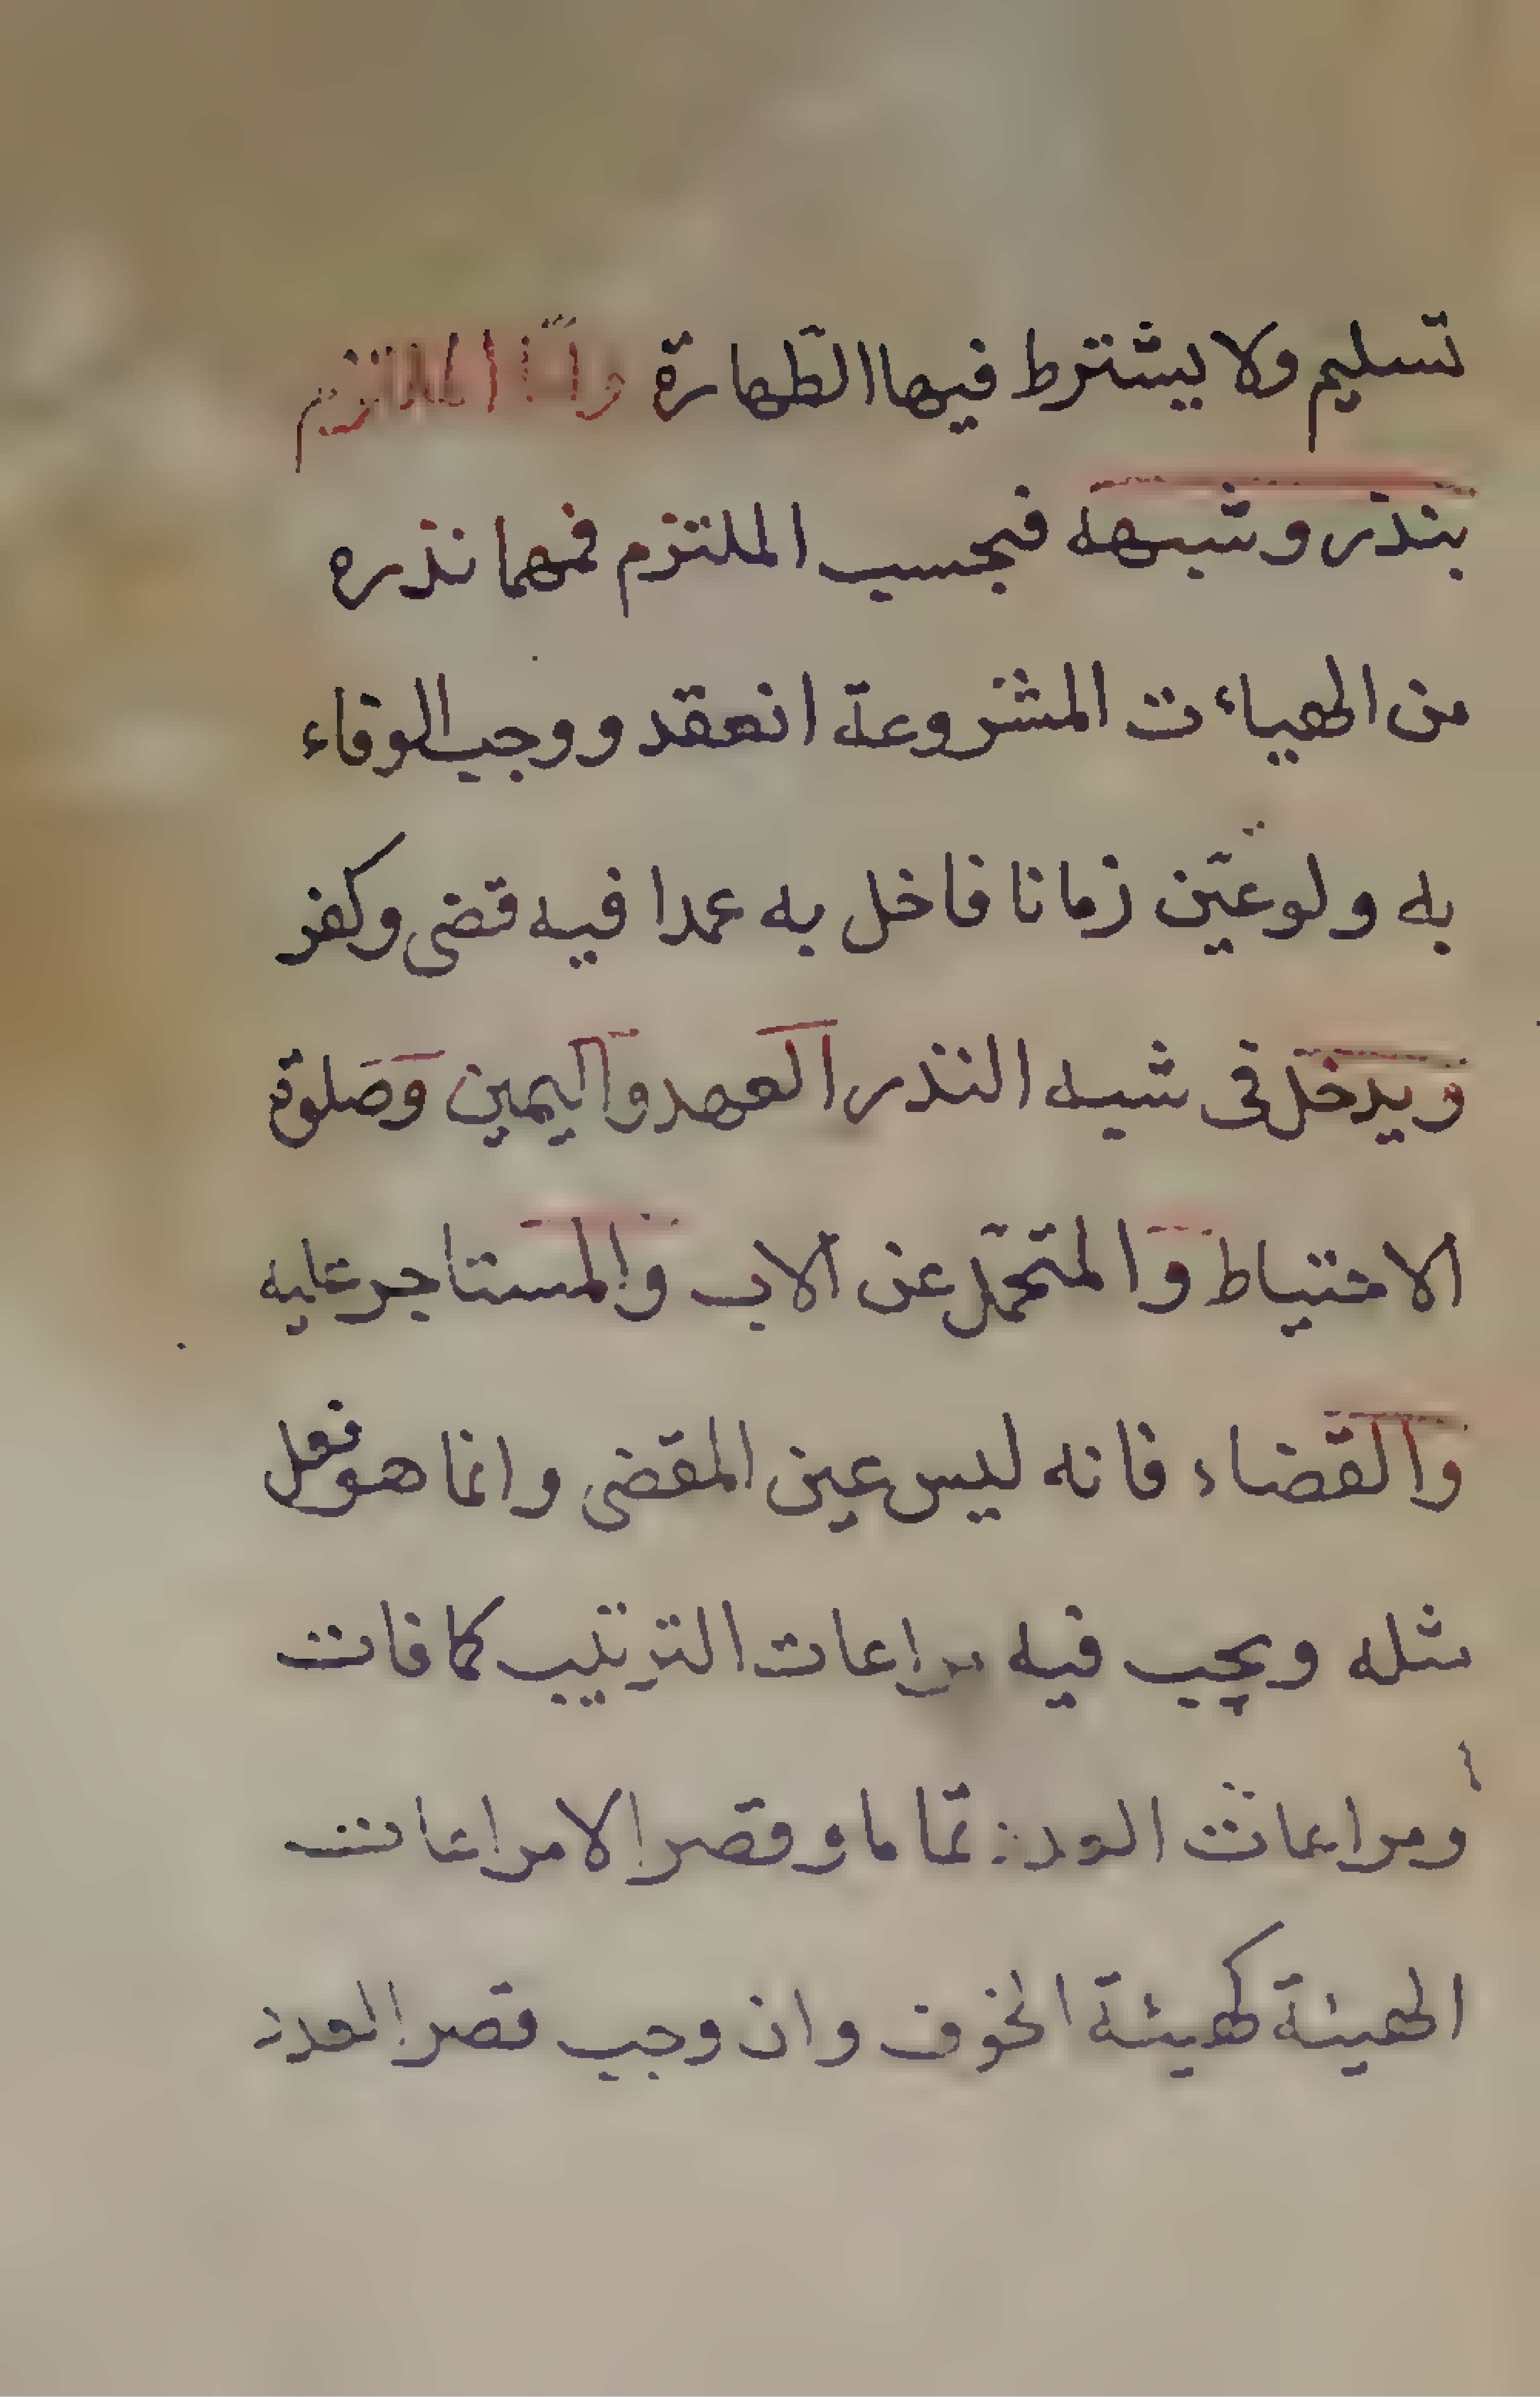 تسليم ولا يشترط فيها الطهارة وامّا الملتزم
بنذر وشبهه فبحسب الملتزم فمهما نذره
من الهياءت المشروعة انعقد ووجب الوفاء
به ولو عيّن زمانا فاخل به عمدا فيه قضى وكفر
ويدخل فى شبه النذر العهد واليمين وصلوة
الاحتياط والمتحمّل عن الاب والمستاجر عليه
والقضاء فانه ليس عين المقضى وانما هو فعل
مثله ويجب فيه مراعات الترتيب كما فات
ومراعات العدد تمّاما وقصرا لا مراعات
الهيئة كهيئة الخوف وان وجب قصر العدد